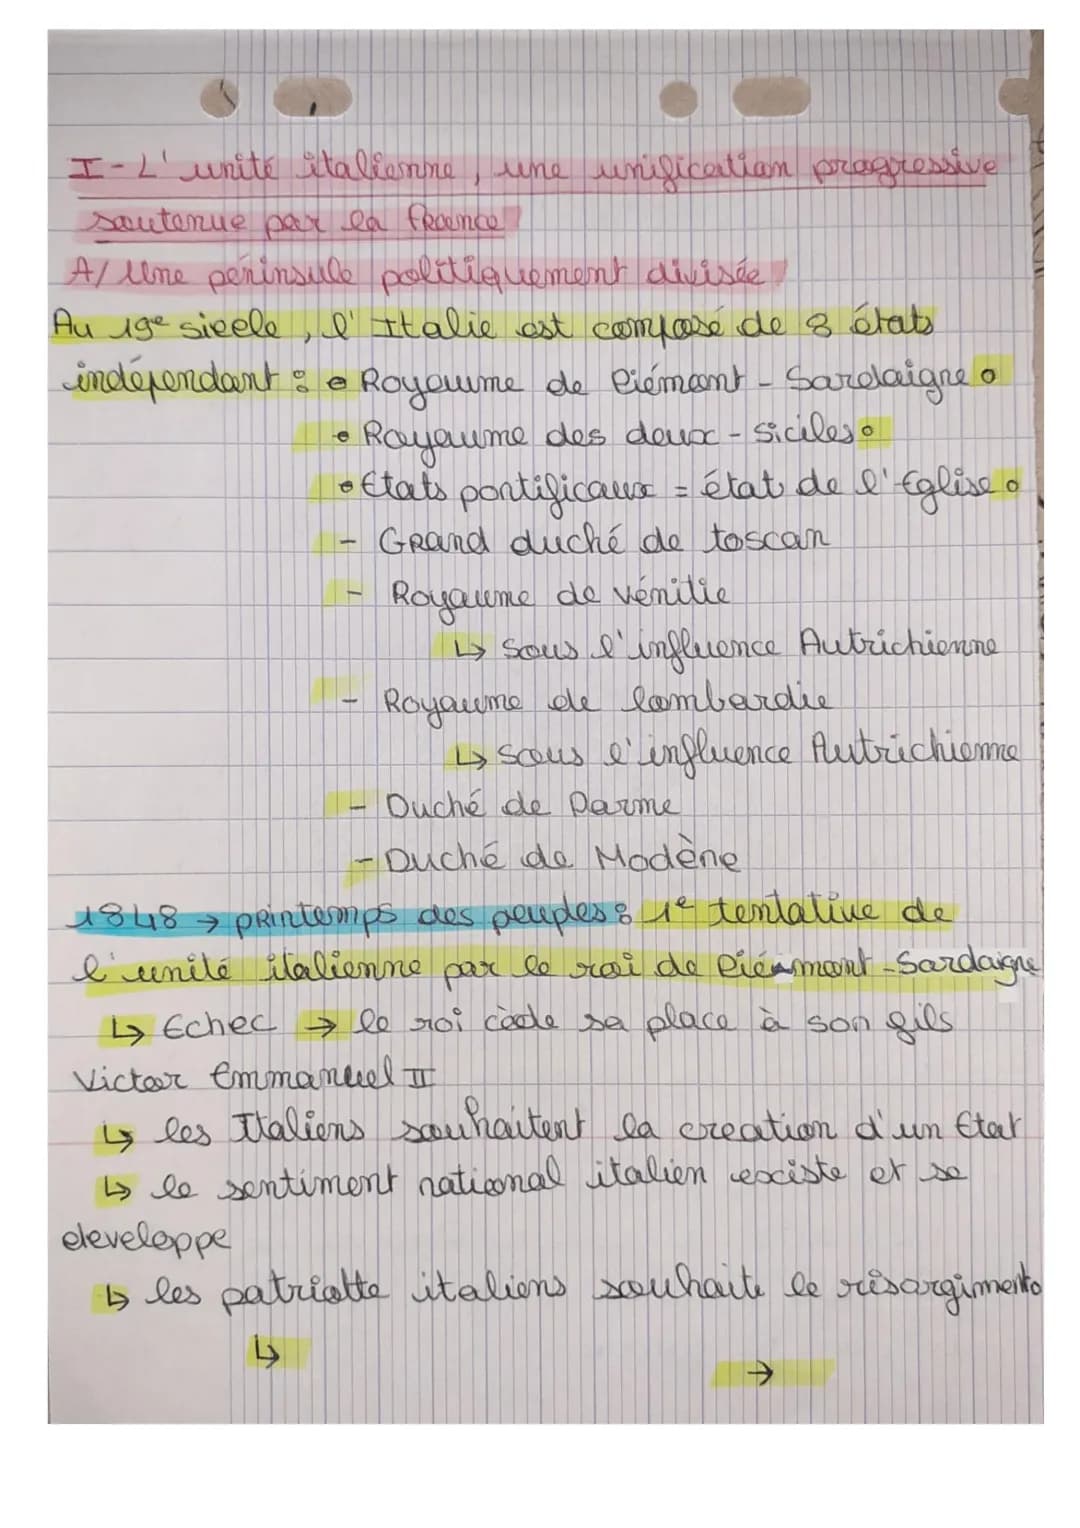 I - L'unité italienne, une unification progressive
soutenue par la france
A/ Une péninsule politiquement divisée
Au 19e sieele, l'Italie est composé de 8 états
indépendant : • Royaume de Piémont - Sardaigne o
• Royaume des deux - siciles o
• Etats pontificaux = état de l'Eglise o
- GRand duché de toscan
- Royaume de vénitie
↳ sous l'influence Autrichienne
- Royaume de lombardie
↳ sous l'influence Autrichienne
- Duché de Parme
- Duché de Modène
1848 → pRintemps des peuples : 1e tentative de
l'unité italienne par le roi de Piémont - Sardaigne
↳ Echec → le roi cède sa place à son fils
Victor Emmanuel II
↳ les Italiens souhaitent la creation d'un Etat
↳ le sentiment national italien existe et se
developpe
↳ les patriotte italiens souhaite le risorgimento
↳ →